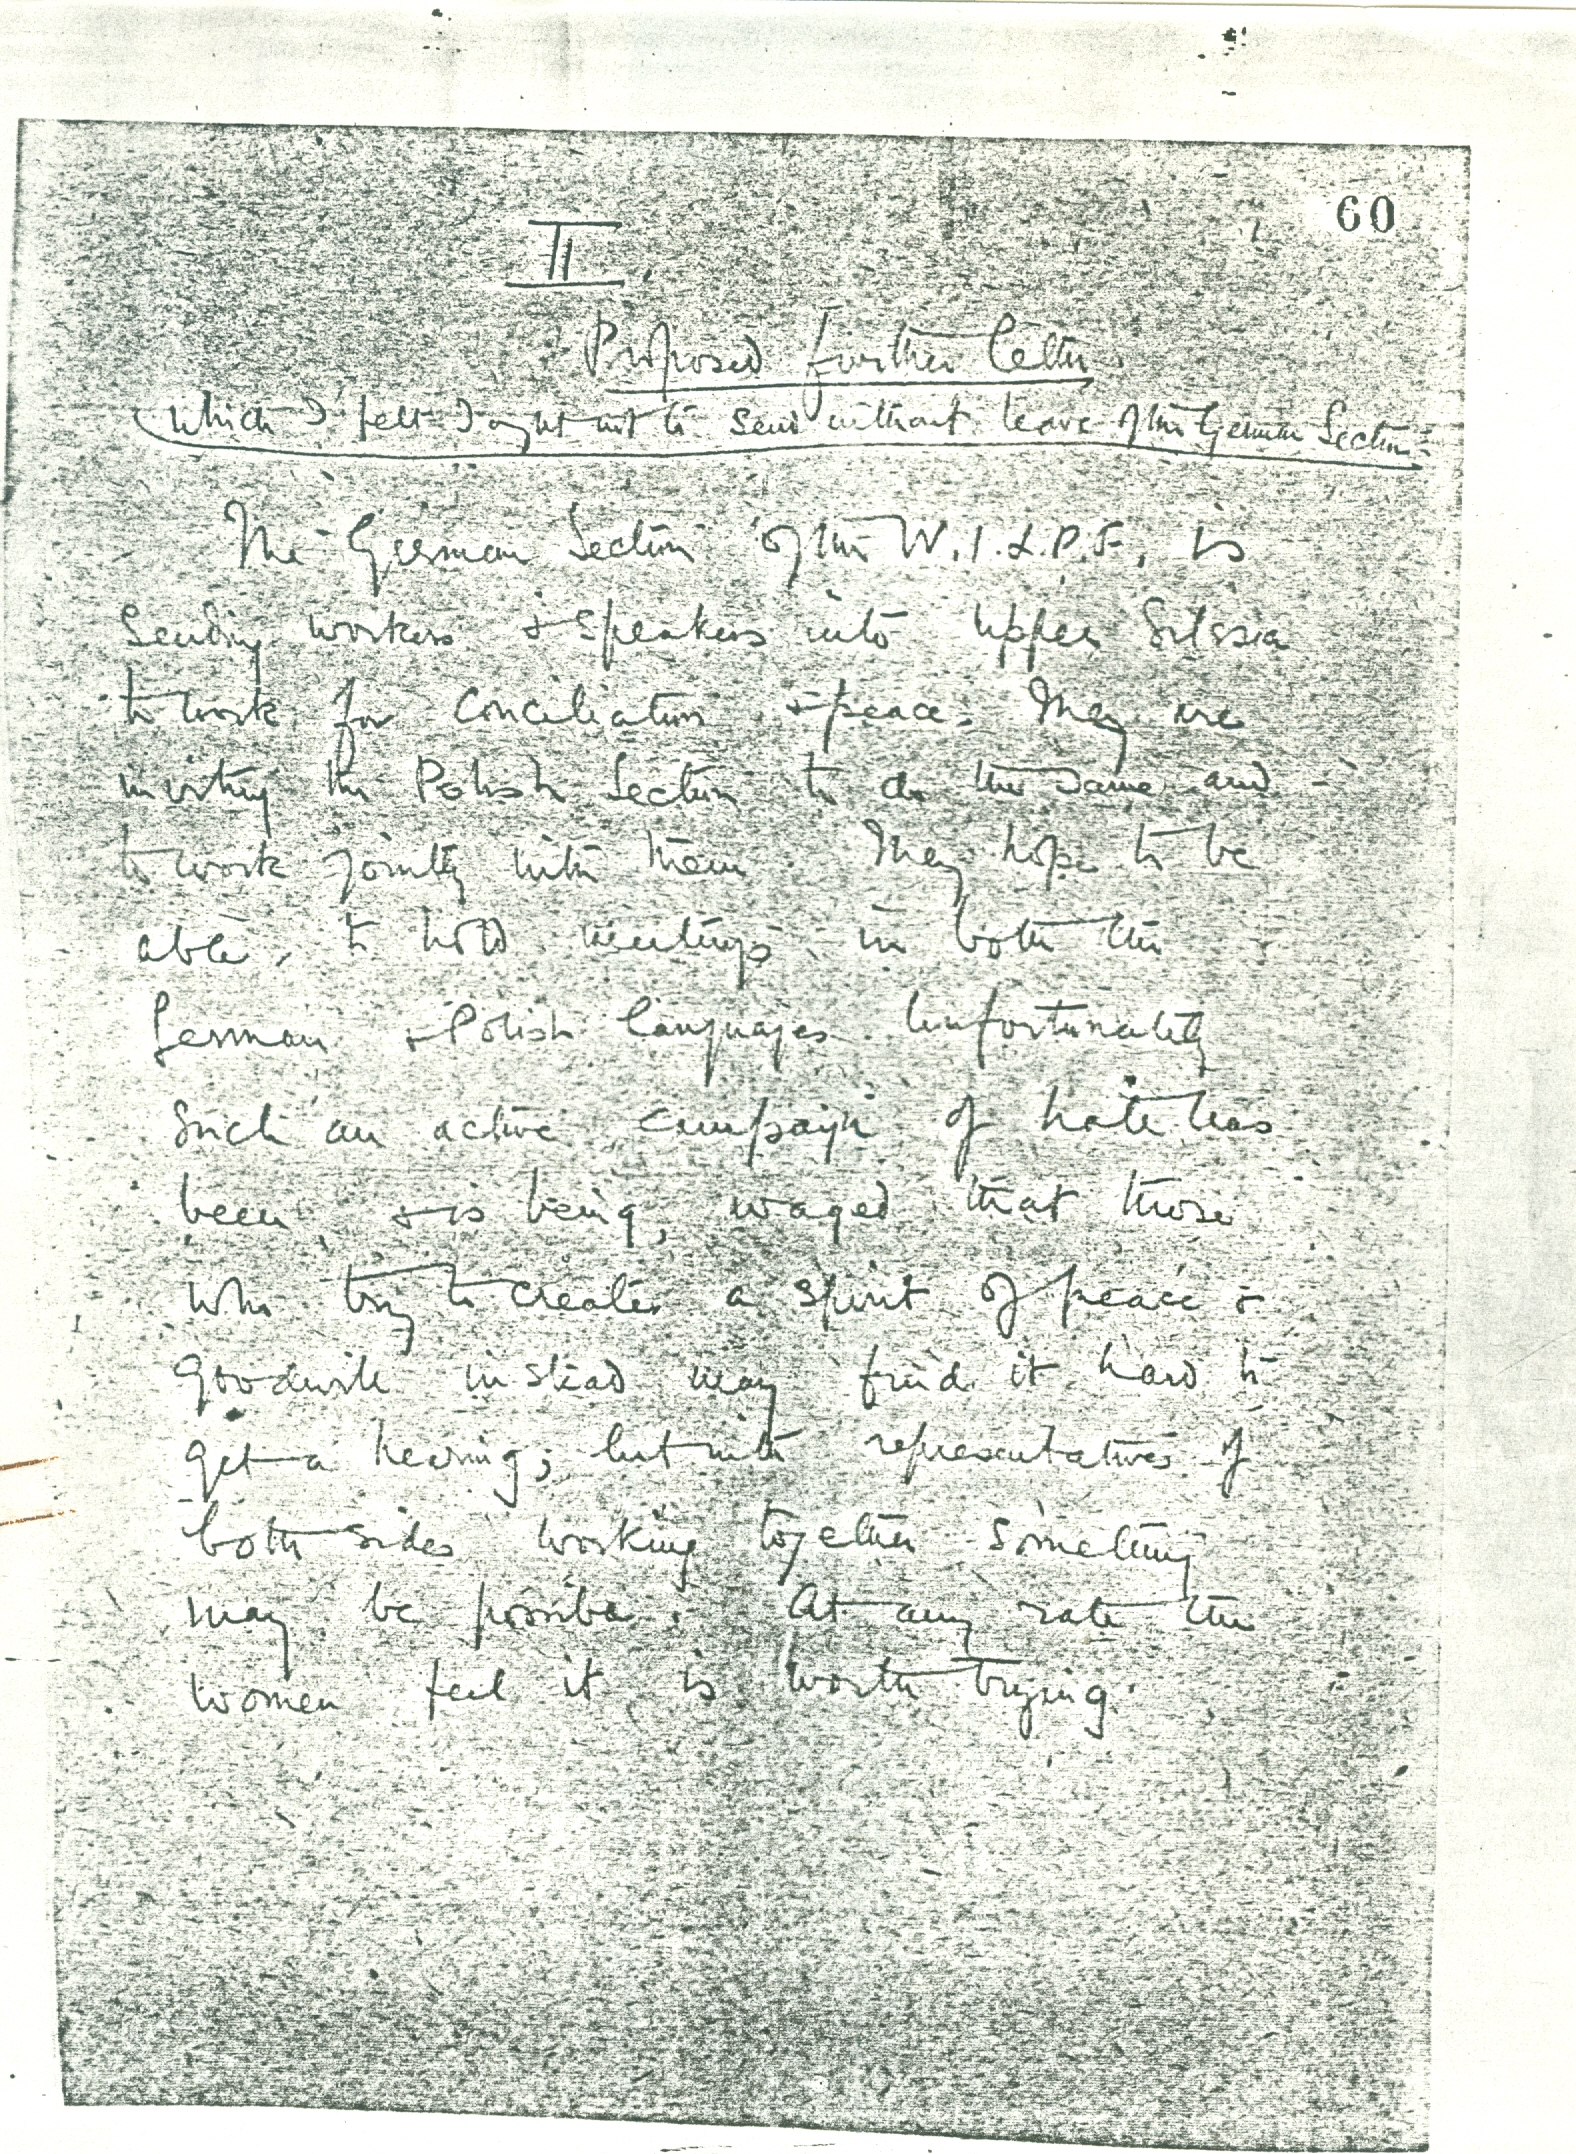 60
II.
Proposed further letter
which I felt I ought not to send without leave of the German Section.
The German Section of the W.I.L.P.F. is
sending workers & speakers into Upper Silesia
to work for conciliation & peace. They are
inviting the Polish Section to do the same and
to work jointly with them. They hope to be
able, to hold meetings in both the
German & Polish languages. Unfortunately
such an active campaign of hate has
been & is being, waged that those
who try to create a spirit of peace &
goodwill instead may find it hard to
get a hearing; but with representatives of
both sides working together something
may be possible. At any rate the
women feel it is worth trying.